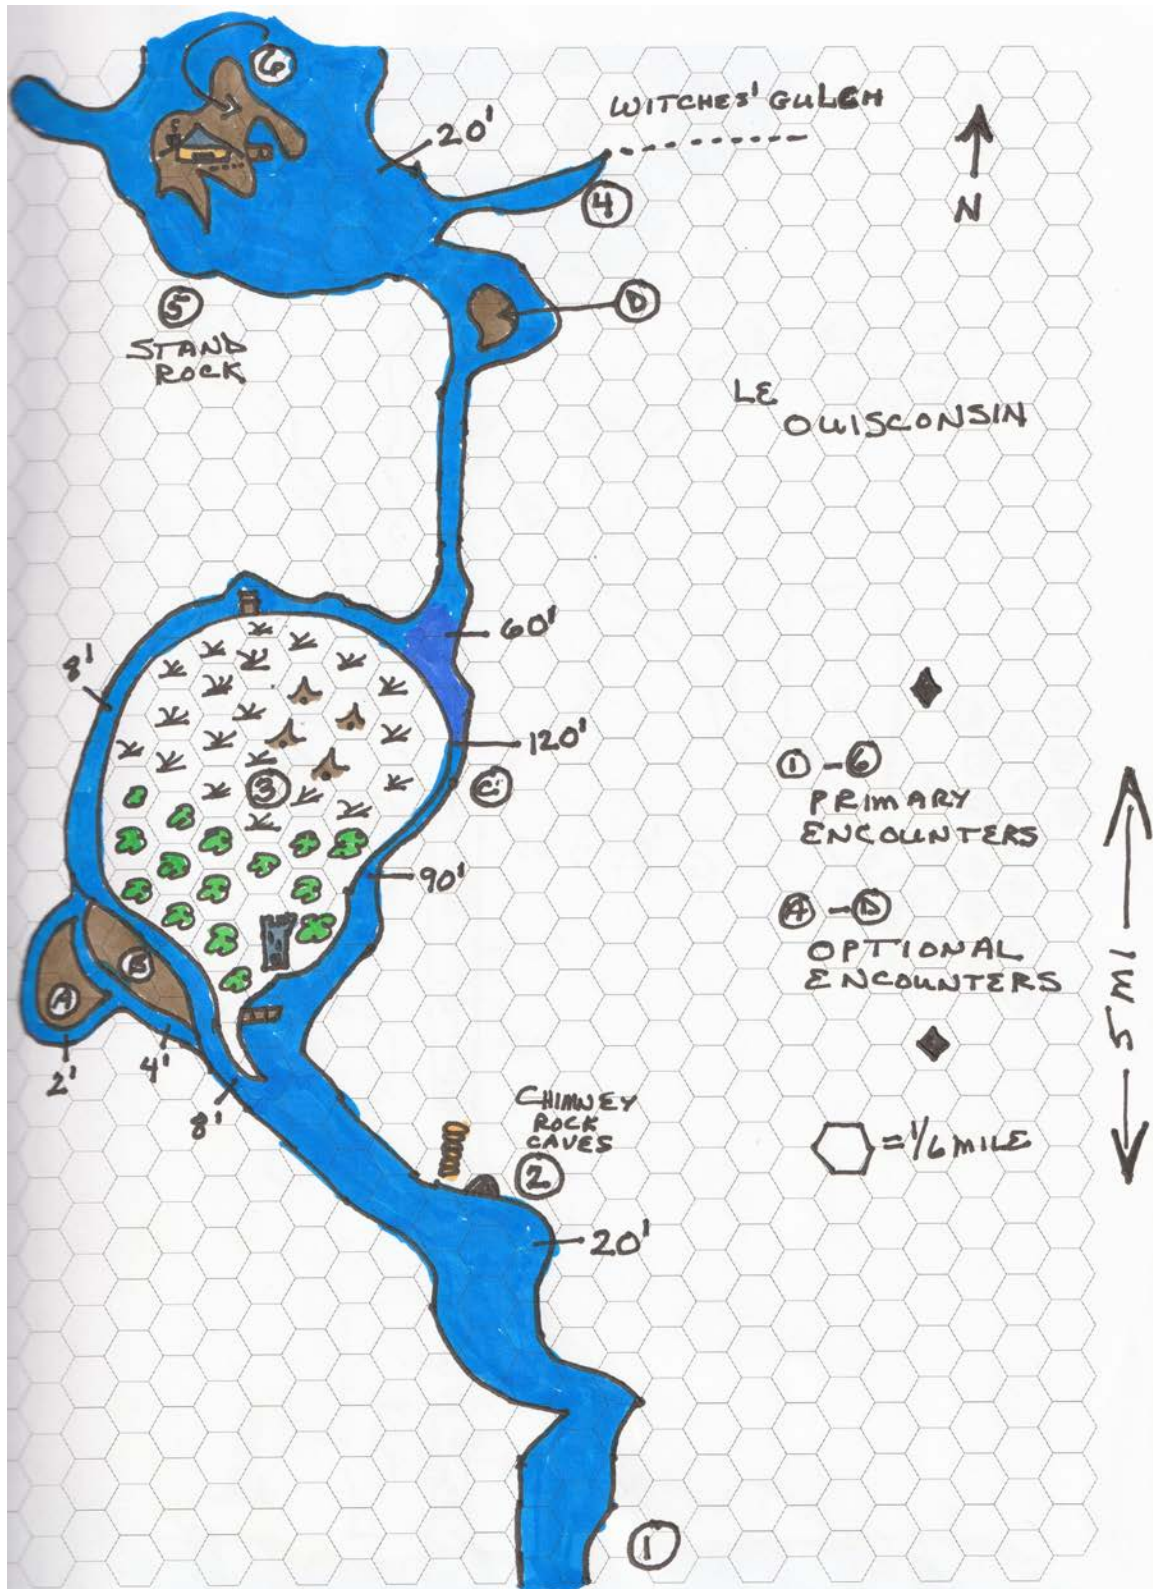 6
20'
WITCHES' GULCH
4
N
5
STAND
ROCK
D
LE
OUISCONSIN
60'
8'
120'
3
C
1 - 6
PRIMARY
ENCOUNTERS
90'
A - D
OPTIONAL
ENCOUNTERS
B
A
5 MI
2'
4'
8'
CHIMNEY
ROCK
CAVES
2
= 1/6 MILE
20'
1